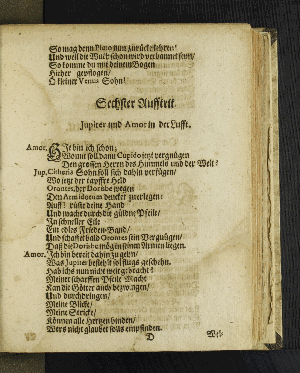 So mag denn Pluto nun zurücke kehren/
Und weil die Nacht schon wird verbannet seyn/
So komme du mit deinem Bogen
Hieher geflogen/
O kleiner Venus Sohn!
Sechster Aufftritt.
Jupiter und Amor in der Lufft.
Amor. Hie bin ich schon;
Womit soll dann Cupido jetzt vergnügen
Den grossen Herrn des Himmels und der Welt?
Jup. Citheris Sohn soll sich dahin verfügen/
Wo jetzt der tapffre Held
Orontes, der Dorisbe wegen
Den Armidorum
Auff! rüste deine Hand
Und mache durch die güldne Pfeile/
In schneller Eile
Ein edles Frieden-Band/
Und schaffe bald Orontes sein Vergnügen/
Daß die Dorisbe mög in seinen Armen liegen.
Amor. Ich bin bereit dahin zu gehn/
Was Jupiter befiehlt soll flugs geschehn.
Hab ichs nun nicht weit gebracht?
Meiner scharffen Pfeile Macht
Kan die Götter auch bezwingen/
Und durchdringen/
Meine Blicke/
Meine Stricke/
Können alle Hertzen binden/
Wers nicht glaubet solls empfinden.
D